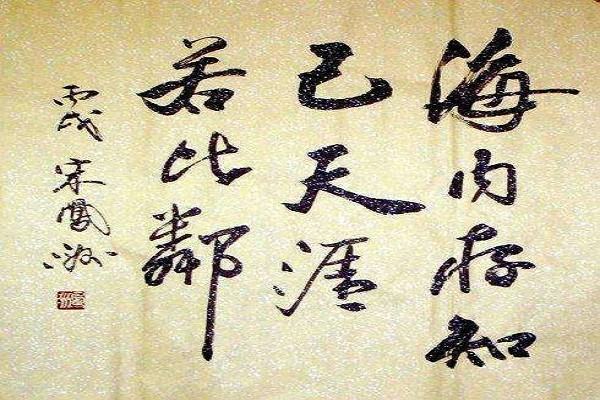 海内存知
己天涯
若比鄰
丙戌 宋鳳